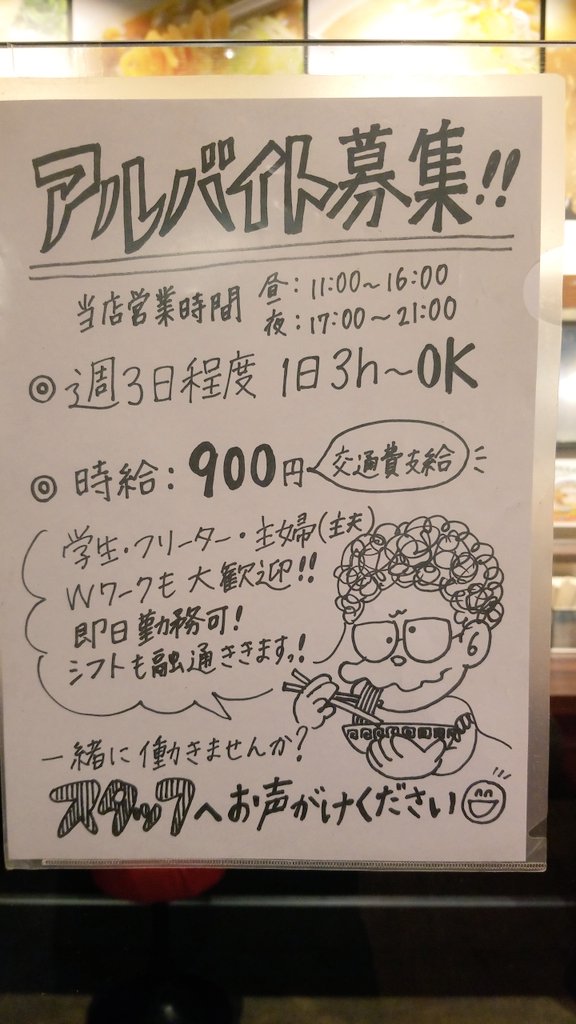 アルバイト募集!!
当店営業時間 昼:11:00~16:00
夜:17:00~21:00
◎週3日程度 1日3h~OK
◎時給:900円 交通費支給
学生・フリーター・主婦(主夫)
Wワークも大歓迎!!
即日勤務可!
シフトも融通ききますっ!
一緒に働きませんか?
スタッフへお声がけください